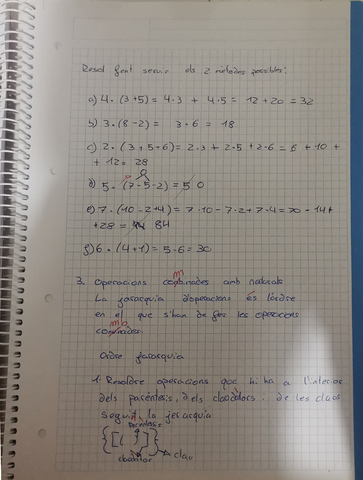 Resol fent servir els 2 mètodes possibles:
a) 4·(3+5) = 4·3 + 4·5 = 12+20 = 32
b) 3·(8-2) = 3·6 = 18
c) 2·(3+5+6) = 2·3 + 2·5 + 2·6 = 6 + 10 +
+ 12 = 28
d) 5·(7-5-2) = 5·0
e) 7·(10-2+4) = 7·10 - 7·2 + 7·4 = 70 - 14 +
+28 = 84
f) 6·(4+1) = 5·6 = 30
3. Operacions combinades amb naturals
La jerarquia d'operacions és l'ordre
en el que s'han de fer les operacions
combinades.
Ordre jerarquia
1. Resoldre operacions que hi ha a l'interior
dels parèntesis, dels claudàtors i de les claus
seguint la jerarquia
parèntesis
{[( )]}
claudàtor clau